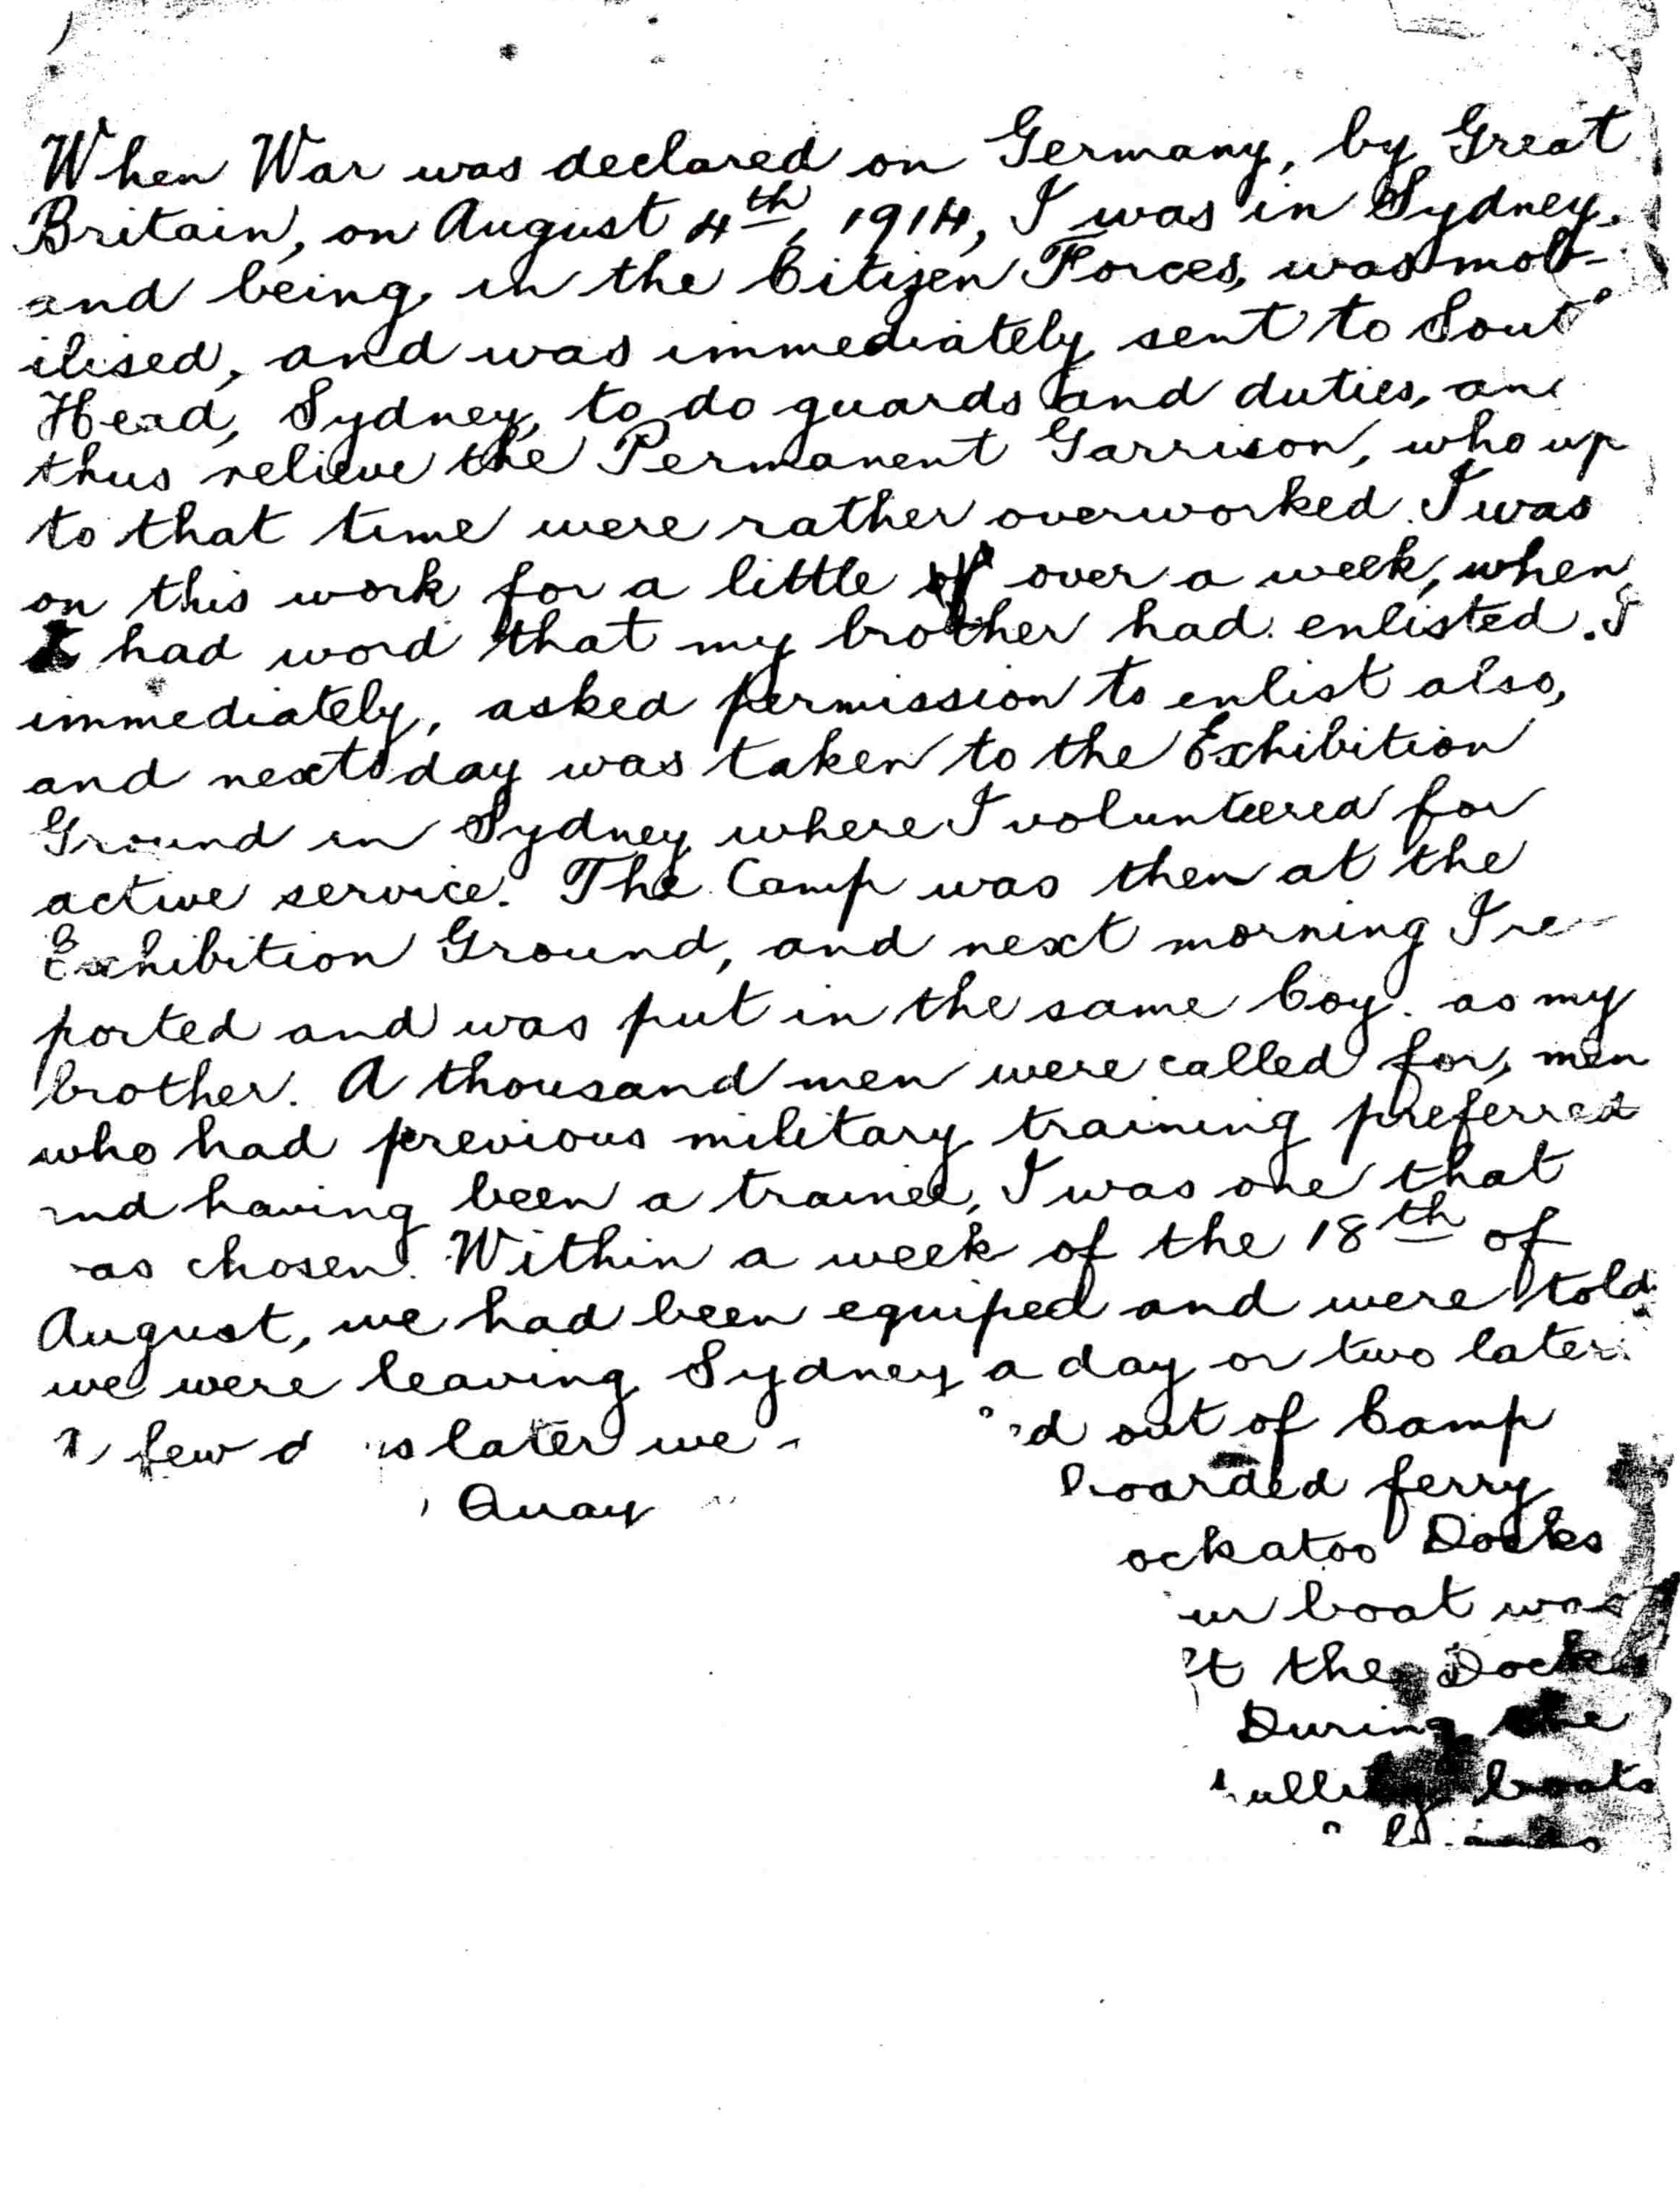 When War was declared on Germany, by Great
Britain, on August 4th, 1914, I was in Sydney,
and being in the Citizen Forces, was mob-
ilised, and was immediately sent to Sout
Head, Sydney, to do guards and duties, an
thus relieve the Permanent Garrison, who up
to that time were rather overworked. I was
on this work for a little over a week, when
I had word that my brother had enlisted. I
immediately, asked permission to enlist also,
and next day was taken to the Exhibition
Ground in Sydney where I volunteered for
active service. The Camp was then at the
Exhibition Ground, and next morning I re-
ported and was put in the same Coy. as my
brother. A thousand men were called for, men
who had previous military training preferred
and having been a trainee, I was one that
as chosen. Within a week of the 18th of
August, we had been equiped and were told
we were leaving Sydney a day or two later.
A few d ys later we d out of Camp
Quay boarded ferry
ockatoo Docks
ur boat was
ft the Docks
During the
ulling boats